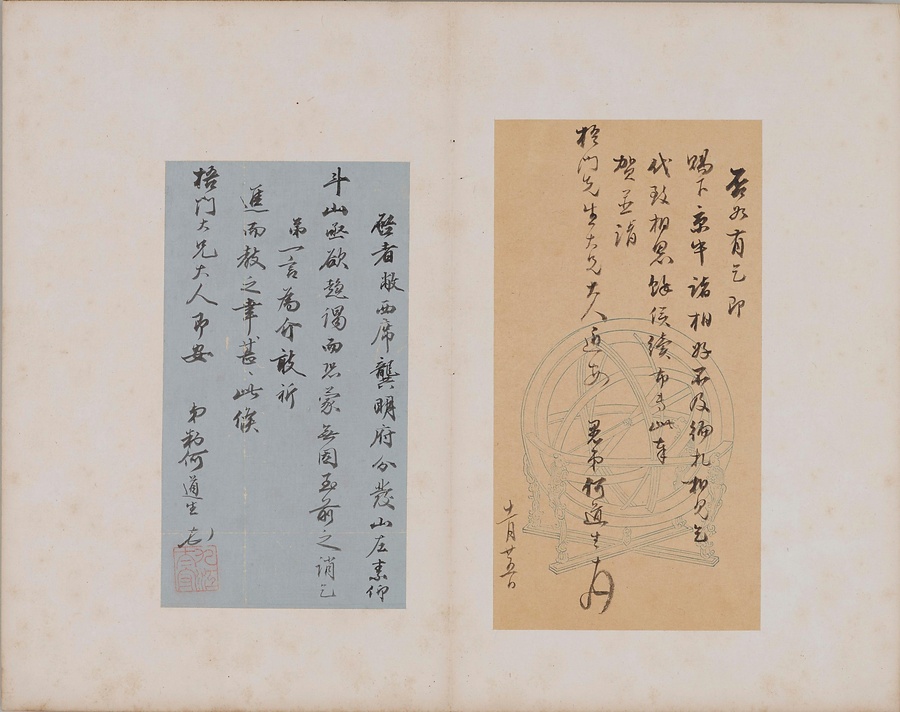 否如有乞即
賜下京中諸相好不及徧札相見乞
代致相思餘俟續布專此奉
賀並請
梧門先生大兄大人近安 愚弟何道生
十一月廿五日
啓者敝西席龔明府分發山左素仰
斗山亟欲趨謁而恐蒙無因至前之誚乞
弟一言為介敢祈
進而教之幸甚甚此候
梧門大兄大人即安
弟制何道生